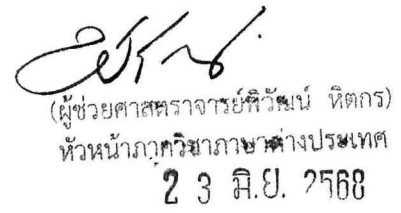 (ผู้ช่วยศาสตราจารย์พิวัฒน์ หิตกร)
หัวหน้าภาควิชาภาษาต่างประเทศ
2 3 มิ.ย. 2568